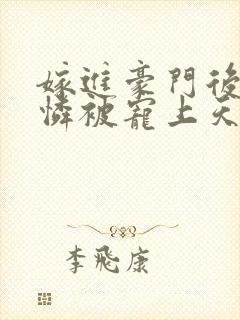 嫁進豪門後
憐被寵上天
李飛康